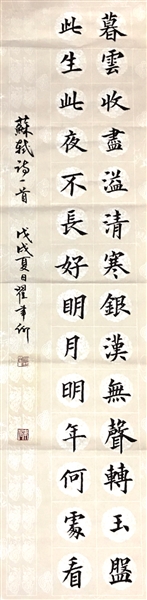 暮雲收盡溢清寒銀漢無聲轉玉盤
此生此夜不長好明月明年何處看
蘇軾詩一首 戊戌夏日